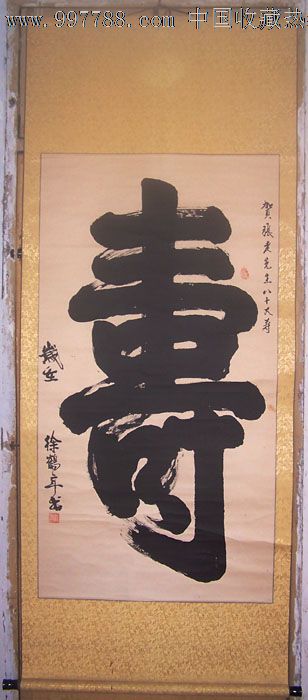 www.997788.com 中国收藏热
賀張老先生八十大寿
壽
徐鶴年书